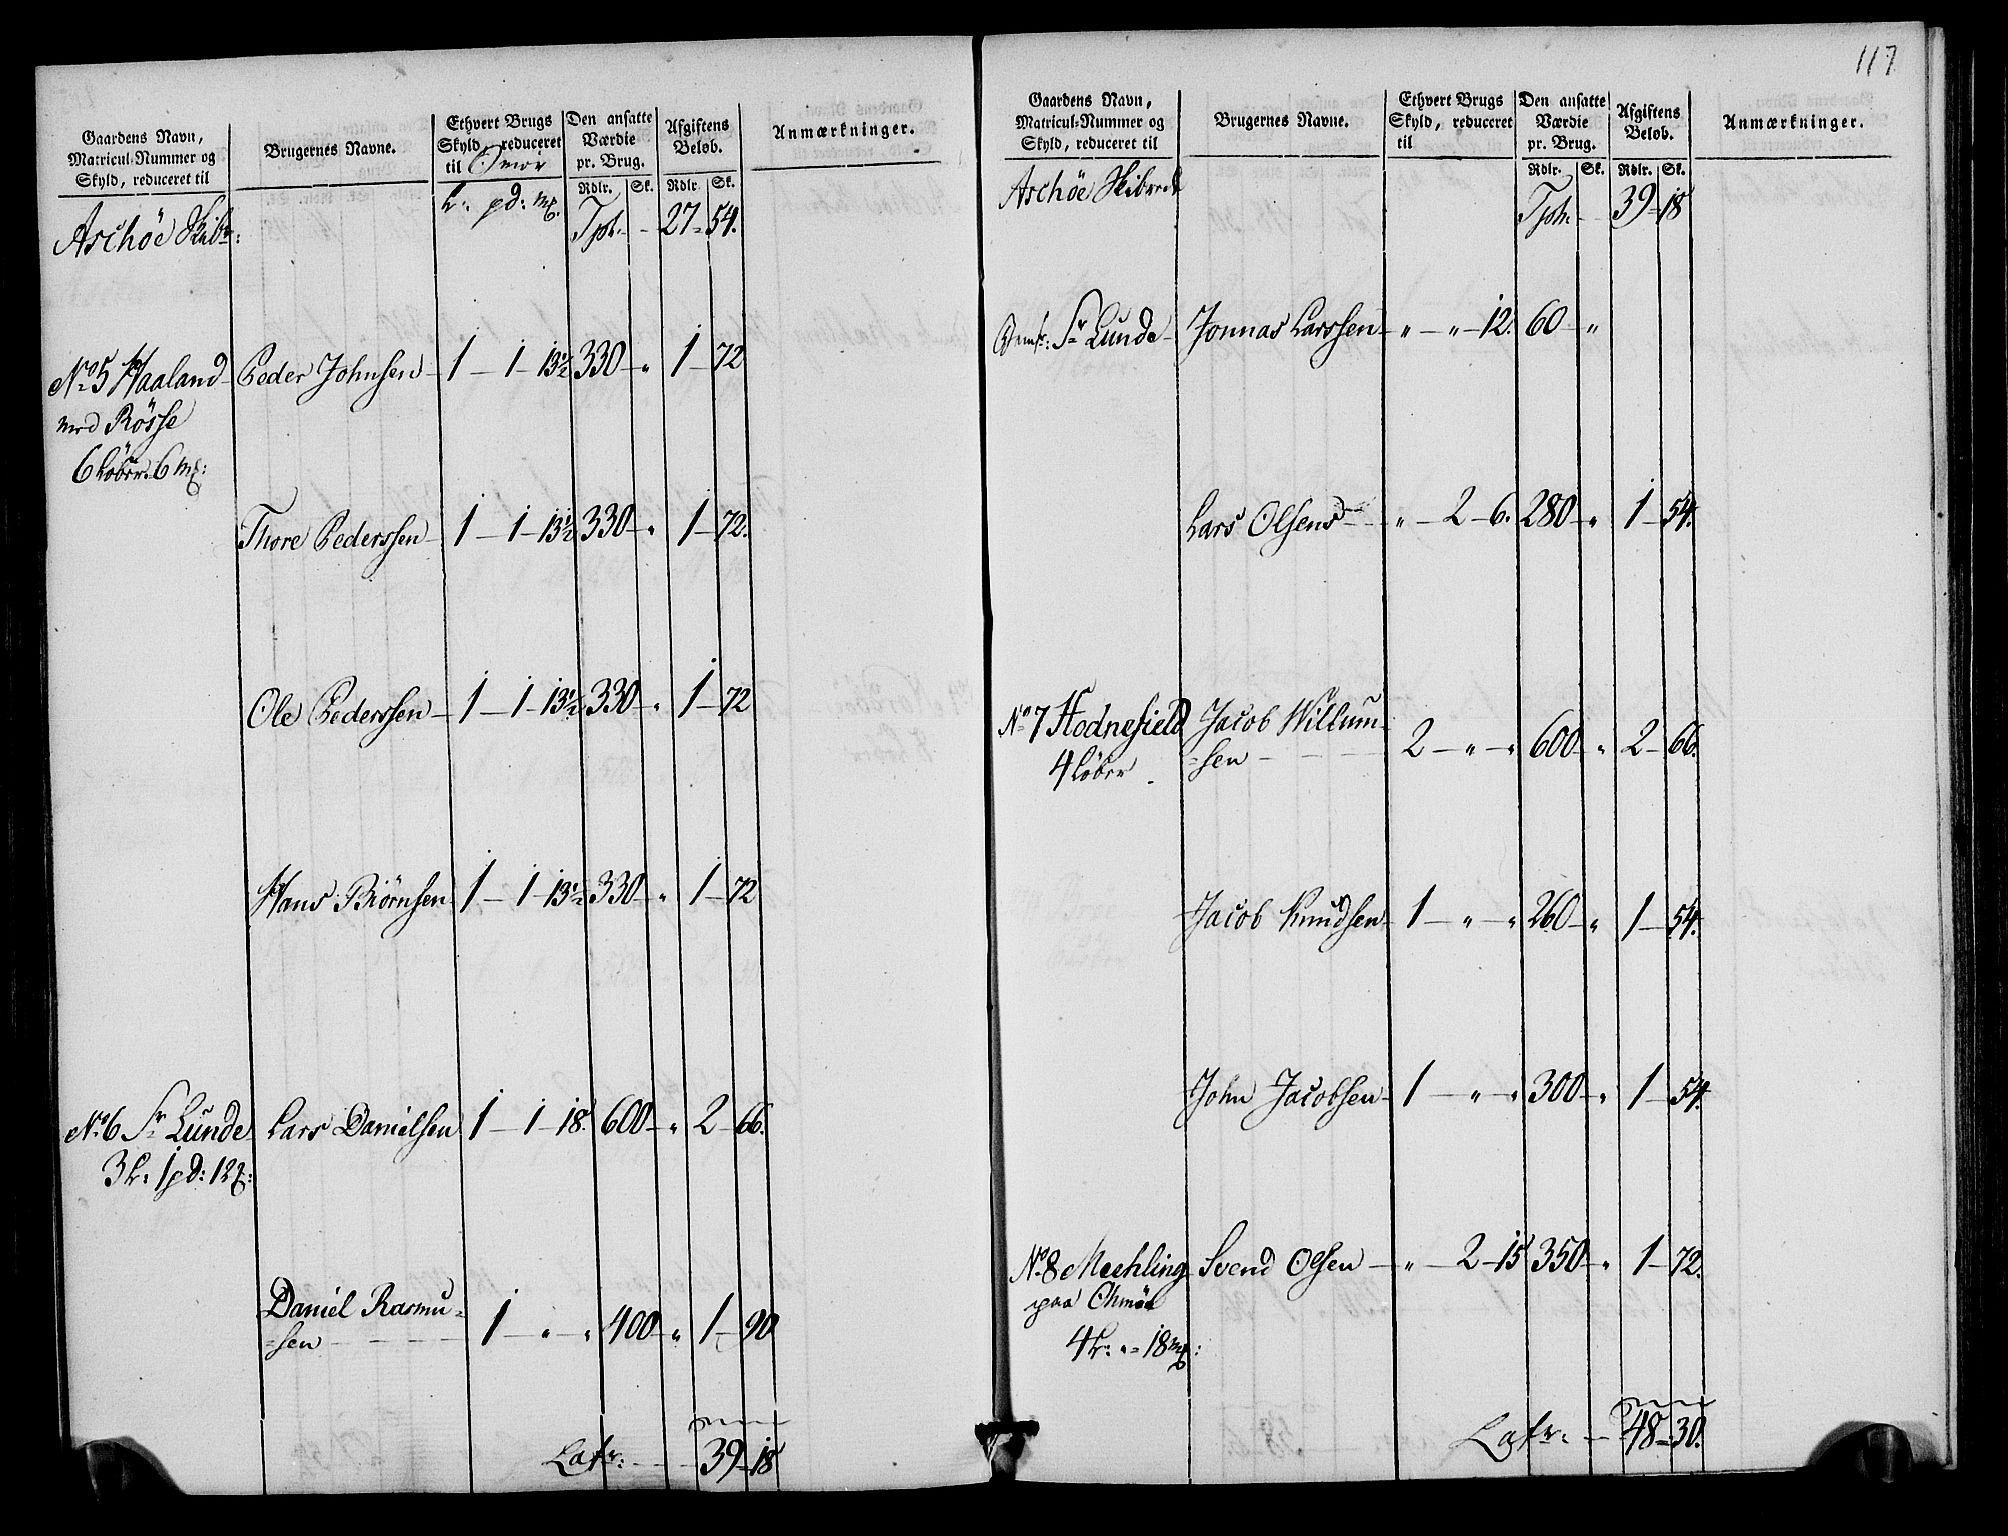 Gaardens Navn,
Matricul-Nummer og
Skyld, reduceret til
Brugernes Navne.
Ethvert Brugs
Skyld, reduceret
til Smør
Den ansatte
Værdie
pr. Brug.
Afgiftens
Beløb.
Anmærkninger.
L: pd: m𝔭. Rdlr. Sk. Rdlr. Sk.
Aschöe Skibr: Tpt. - - 27 - 54.
No 5 Haaland - Peder Johnsen - 1 - 1 - 13½ 330 - " 1 - 72
med Rösse
6 Löber. 6 m𝔭:
Thore Pederssen - 1 - 1 - 13½ 330 - " 1 - 72.
Ole Pederssen - 1 - 1 - 13½ 330 - " 1 - 72
Hans Biörnsen 1 - 1 - 13½ 330 - " 1 - 72
No 6 Sr Lunde Lars Danielsen 1 - 1 - 18. 600 - " 2 - 66.
3 L. 1 pd: 12 𝔭:
Daniel Rasmu=
=sen - - - - 1 - " - " 400 - " 1 - 90
Latr: - - - 39 - 18
117
Gaardens Navn,
Matricul-Nummer og
Skyld, reduceret til
Brugernes Navne.
Ethvert Brugs
Skyld, reduceret
til
Den ansatte
Værdie
pr. Brug.
Afgiftens
Beløb.
Anmærkninger.
Rdlr. Sk. Rdlr. Sk.
Aschöe Skibrede Tpt. - - 39 - 18
Sr Lunde - Jonnas Larssen - " - " - 12. 60 - "
Lars Olsen - - " - 2 - 6. 280 - " 1 - 54.
No 7 Hodnefield Jacob Willum-
4 Löber =sen - - - - 2 - " - " 600 - " 2 - 66.
Jacob Knudsen - 1 - " - " 260 - " 1 - 54.
John Jacobsen - 1 - " - " 300 - " 1 - 54.
No 8 Mechling Svend Olsen - " - 2 - 15 350 - " 1 - 72.
paa
4 L: " = 18 m𝔭:
Latr: - - 48 - 30.